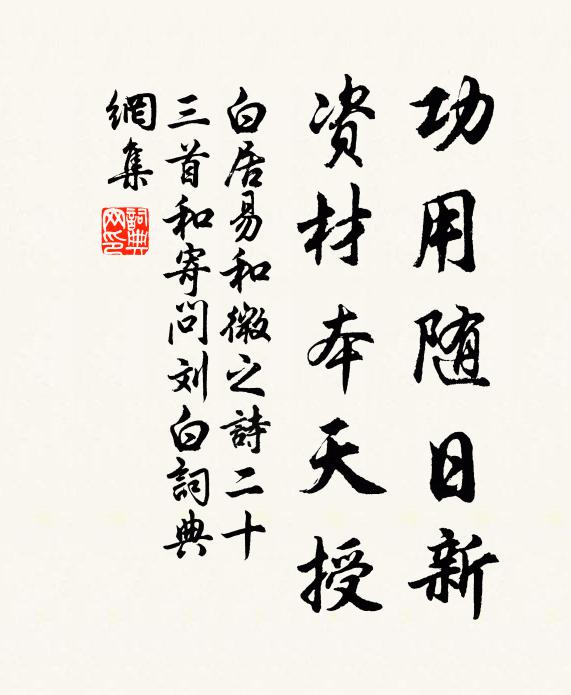 功用随日新
资材本天授
白居易和微之詩二十
三首和寄问刘白詞典
網集
詞典网印